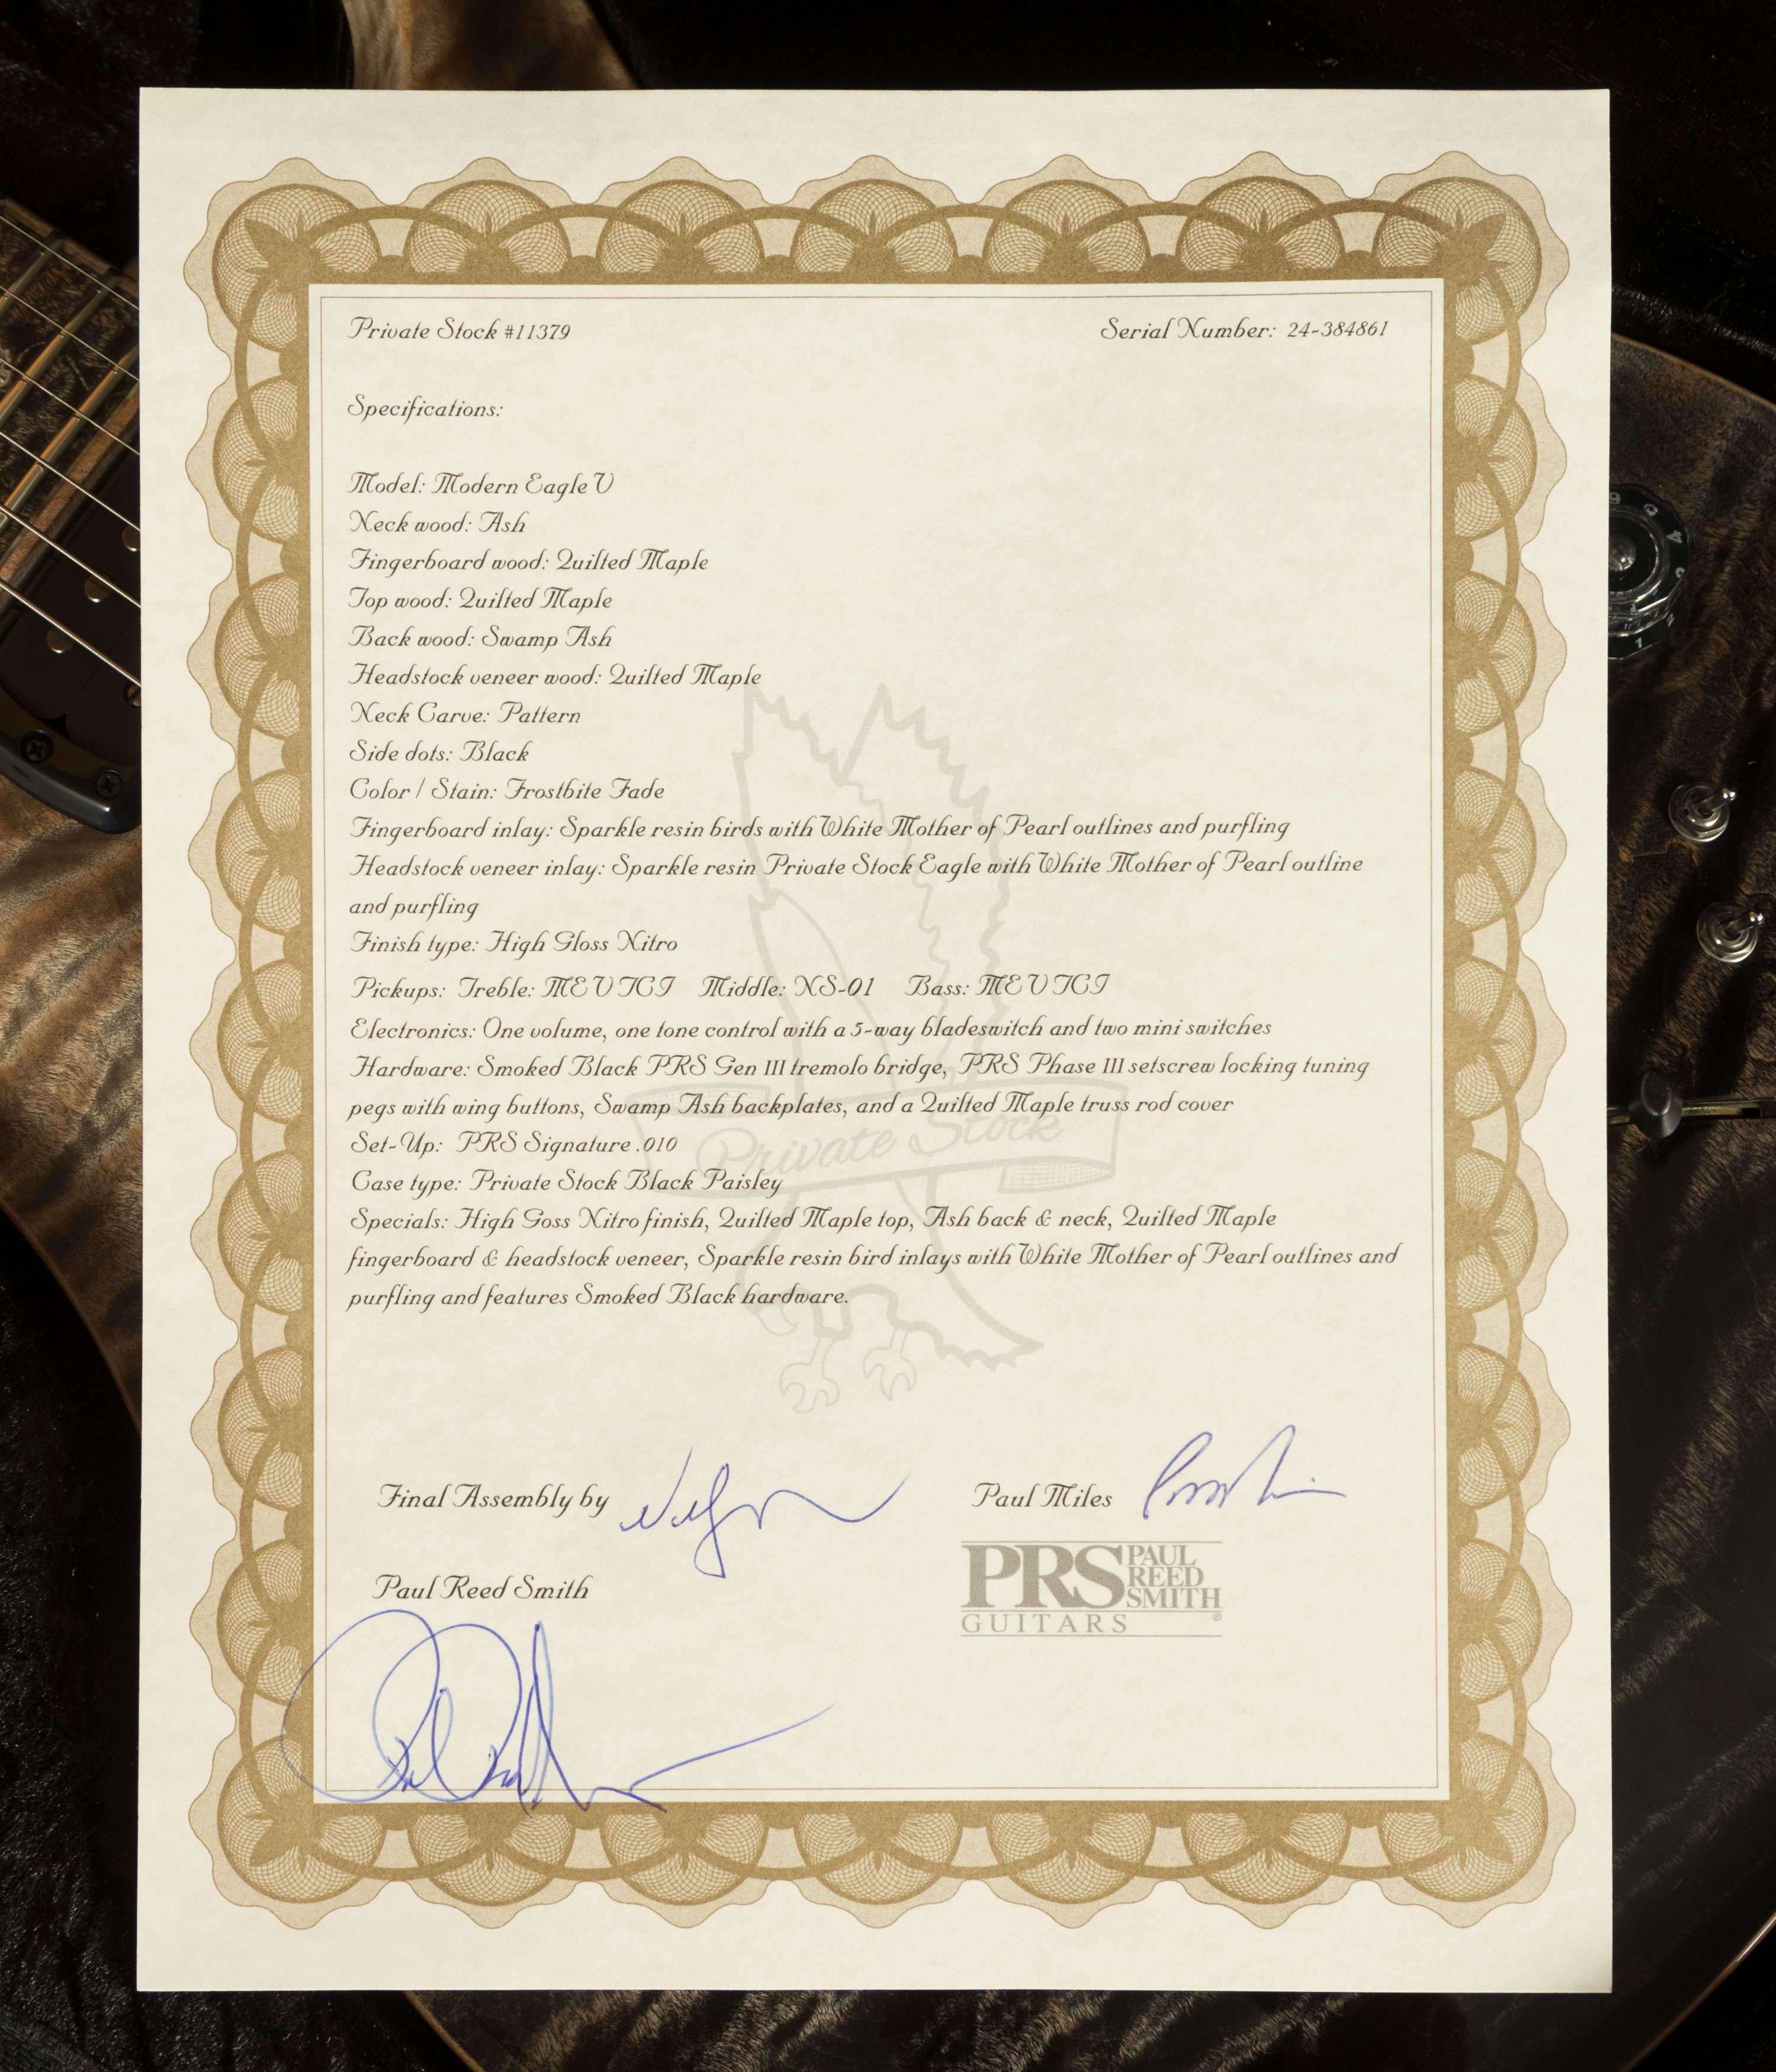 Private Stock #11379
Serial Number: 24-384861
Specifications:
Model: Modern Eagle V
Neck wood: Ash
Fingerboard wood: Quilted Maple
Top wood: Quilted Maple
Back wood: Swamp Ash
Headstock veneer wood: Quilted Maple
Neck Carve: Pattern
Side dots: Black
Color / Stain: Frostbite Fade
Fingerboard inlay: Sparkle resin birds with White Mother of Pearl outlines and purfling
Headstock veneer inlay: Sparkle resin Private Stock Eagle with White Mother of Pearl outline
and purfling
Finish type: High Gloss Nitro
Pickups: Treble: MEV TCI Middle: NS-01 Bass: MEV TCI
Electronics: One volume, one tone control with a 5-way bladeswitch and two mini switches
Hardware: Smoked Black PRS Gen III tremolo bridge, PRS Phase III setscrew locking tuning
pegs with wing buttons, Swamp Ash backplates, and a Quilted Maple truss rod cover
Private Stock
Set-Up: PRS Signature .010
Case type: Private Stock Black Paisley
Specials: High Goss Nitro finish, Quilted Maple top, Ash back & neck, Quilted Maple
fingerboard & headstock veneer, Sparkle resin bird inlays with White Mother of Pearl outlines and
purfling and features Smoked Black hardware.
Final Assembly by
Paul Miles
Paul Reed Smith
PRS PAUL REED SMITH
GUITARS